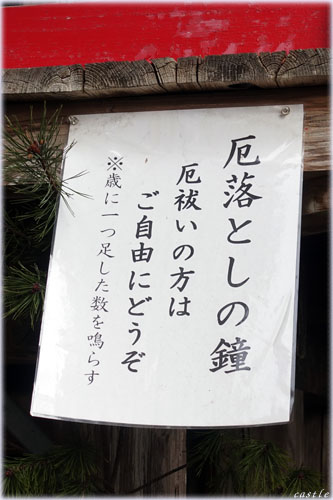 厄落としの鐘
厄祓いの方は
ご自由にどうぞ
※歳に一つ足した数を鳴らす
castle